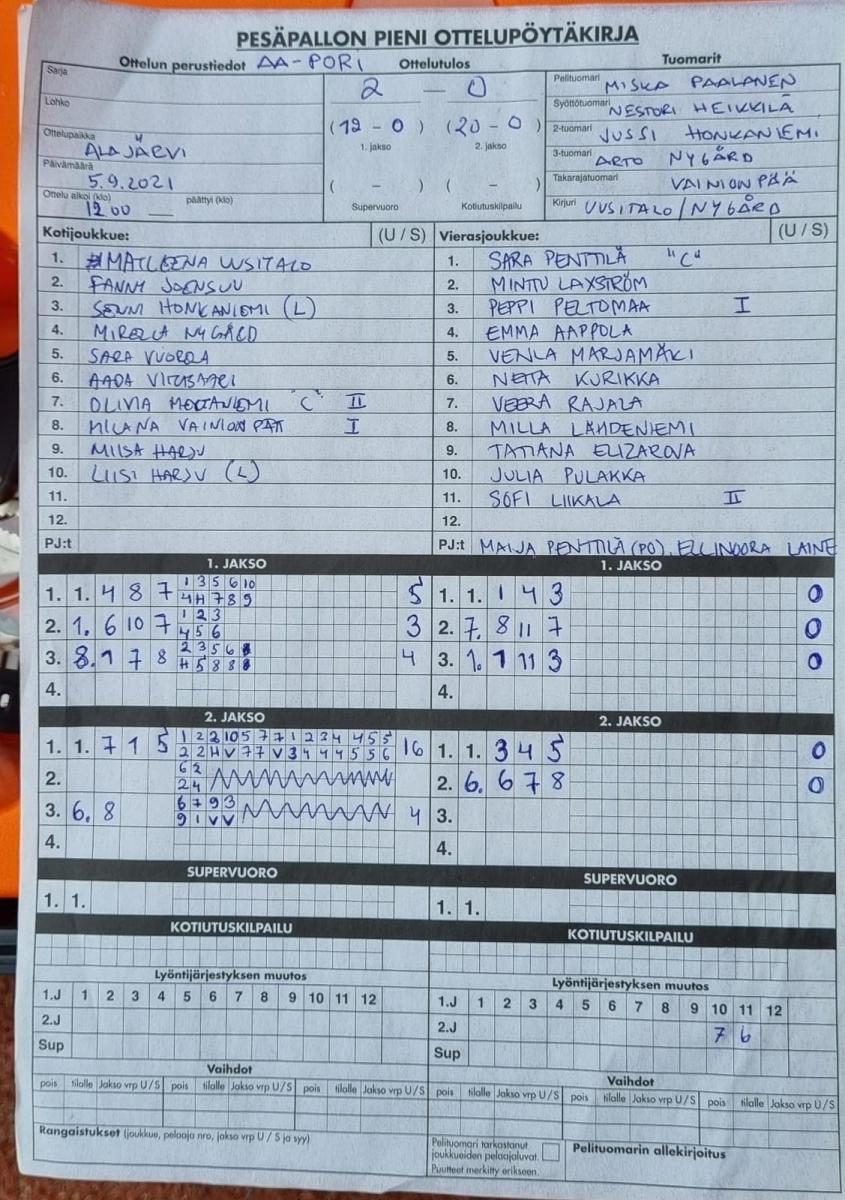 PESÄPALLON PIENI OTTELUPÖYTÄKIRJA
Ottelun perustiedot AA-PORI Ottelutulos Tuomarit
Sarja
2 — 0
Pelituomari MISKA PAALANEN
Lohko
Syöttötuomari NESTORI HEIKKILÄ
Ottelupaikka ALAJÄRVI
(12 - 0) (20 - 0)
1. jakso 2. jakso
2-tuomari JUSSI HONKANIEMI
Päivämäärä 5.9.2021
3-tuomari ARTO NYGÅRD
Ottelu alkoi (klo) 12 00 päättyi (klo)
( - ) ( - )
Supervuoro Kotiutuskilpailu
Takarajatuomari VAINIONPÄÄ
Kirjuri UUSITALO/NYGÅRD
Kotijoukkue: (U / S) Vierasjoukkue: (U / S)
1. MATLEENA UUSITALO 1. SARA PENTTILÄ "C"
2. FANNY JOENSUU 2. MINTU LAXSTRÖM
3. SENNI HONKANIEMI (L) 3. PEPPI PELTOMAA I
4. MIRELLA NYGÅRD 4. EMMA AAPPOLA
5. SARA VUORELA 5. VENLA MARJAMÄKI
6. AADA 6. NETTA KURIKKA
7. OLIVIA "C" II 7. VEERA RAJALA
8. MILANA VAINIONPÄÄ I 8. MILLA LÄHDENIEMI
9. MIISA HARJU 9. TATIANA ELIZAROVA
10. LIISI HARJU (L) 10. JULIA PULAKKA
11. 11. SOFI LIIKALA II
12. 12.
PJ:t PJ:t MAIJA PENTTILÄ (PO), ELLINOORA LAINE
1. JAKSO 1. JAKSO
1 3 5 6 10
1. 1. 4 8 7 5 1. 1. 1 4 3 0
4 H 7 8 9
1 2 3
2. 1. 6 10 7 3 2. 7. 8 11 7 0
4 5 6
2 3 5 6
3. 8. 1 7 8 4 3. 1. 1 11 3 0
H 5 8 8
4. 4.
2. JAKSO 2. JAKSO
1 2 2 10 5 7 7 1 2 3 4 4 5 5
1. 1. 7 1 5 16 1. 1. 3 4 5 0
2 2 H V 7 7 V 3 4 4 4 5 5 6
6 2
2. 2. 6. 6 7 8 0
2 4
6 7 9 3
3. 6. 8 4 3.
9 1 V V
4. 4.
SUPERVUORO SUPERVUORO
1. 1. 1. 1.
KOTIUTUSKILPAILU KOTIUTUSKILPAILU
Lyöntijärjestyksen muutos Lyöntijärjestyksen muutos
1.J 1 2 3 4 5 6 7 8 9 10 11 12 1.J 1 2 3 4 5 6 7 8 9 10 11 12
2.J 2.J 7 6
Sup Sup
Vaihdot Vaihdot
pois tilalle Jakso vrp U/S pois tilalle Jakso vrp U/S pois tilalle Jakso vrp U/S pois tilalle Jakso vrp U/S pois tilalle Jakso vrp U/S pois tilalle Jakso vrp U/S
Rangaistukset (joukkue, pelaaja nro, jakso vrp U / S ja syy)
Pelituomari tarkastanut
joukkueiden pelaajaluvat.
Puutteet merkitty erikseen.
Pelituomarin allekirjoitus